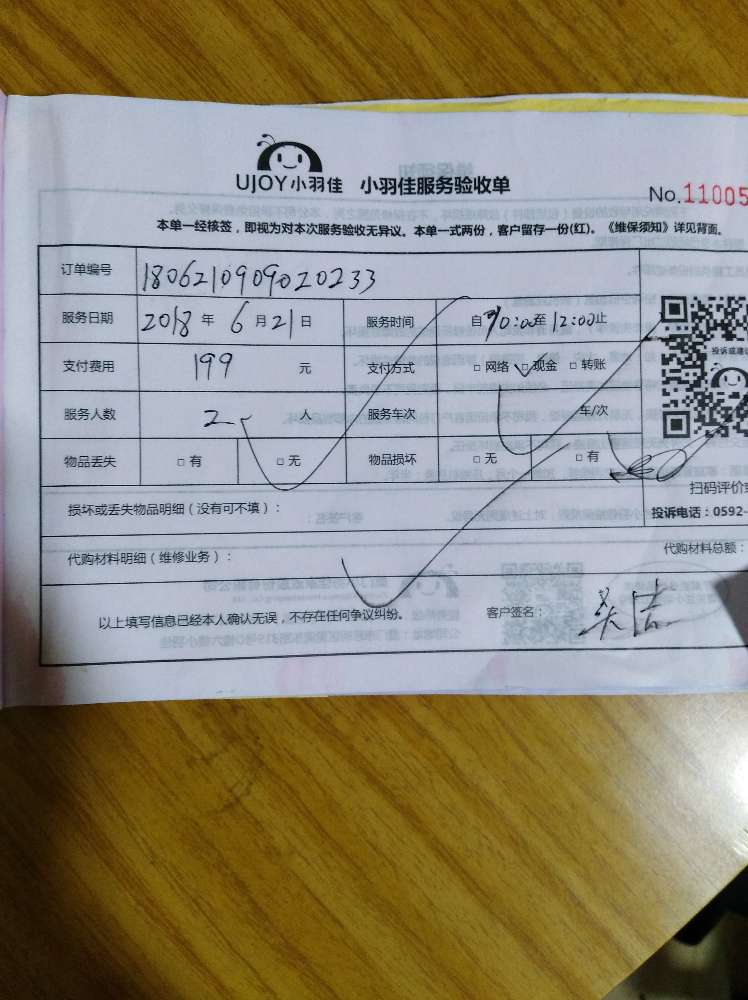 UJOY小羽佳 小羽佳服务验收单
No.11005
本单一经核签,即视为对本次服务验收无异议。本单一式两份,客户留存一份(红)。《维保须知》详见背面。
订单编号 1806210909020233
服务日期 2018 年 6 月 21 日 服务时间 自 10:00至 12:00止
支付费用 199 元 支付方式 □ 网络 □ 现金 □ 转账
投诉或建议
服务人数 2 人 服务车次 车/次
物品丢失 □ 有 □ 无 物品损坏 □ 无 □ 有
扫码评价
损坏或丢失物品明细(没有可不填):
投诉电话:0592-
代购材料明细(维修业务): 代购材料总额:
以上填写信息已经本人确认无误,不存在任何争议纠纷。 客户签名: